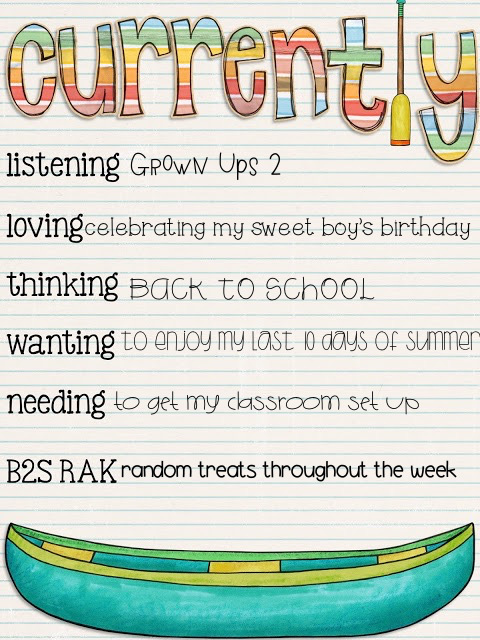 currently
listening Grown Ups 2
loving celebrating my sweet boy's birthday
thinking BACK TO SCHOOL
wanting to enjoy my last 10 days of summer
needing to get my classroom set up
B2S RAK random treats throughout the week